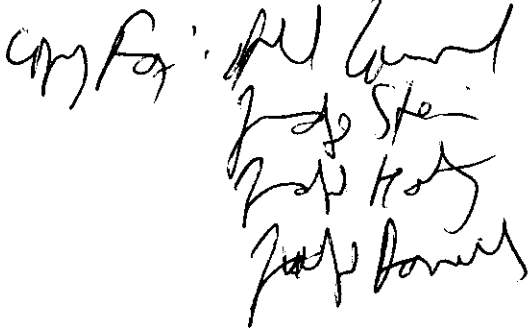 Copy Fax: All Counsel
Judge Stein
Judge Holtz
Judge Daniels